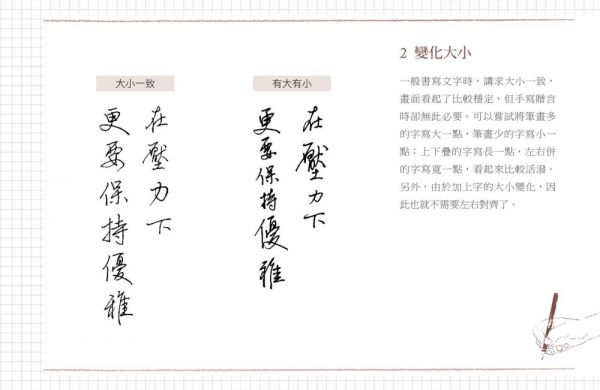 2 變化大小
一般書寫文字時，講求大小一致，
畫面看起了比較穩定，但手寫贈言
時卻無此必要。可以嘗試將筆畫多
的字寫大一點，筆畫少的字寫小一
點；上下疊的字寫長一點，左右併
的字寫寬一點，看起來比較活潑。
另外，由於加上字的大小變化，因
此也就不需要左右對齊了。
有大有小
在壓力下
更要保持優雅
大小一致
在壓力下
更要保持優雅